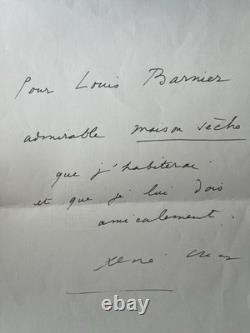 Pour Louis Barnier
admirable maison sèche
que j'habiterai
et que je lui dois
amicalement.
René Char
ebay